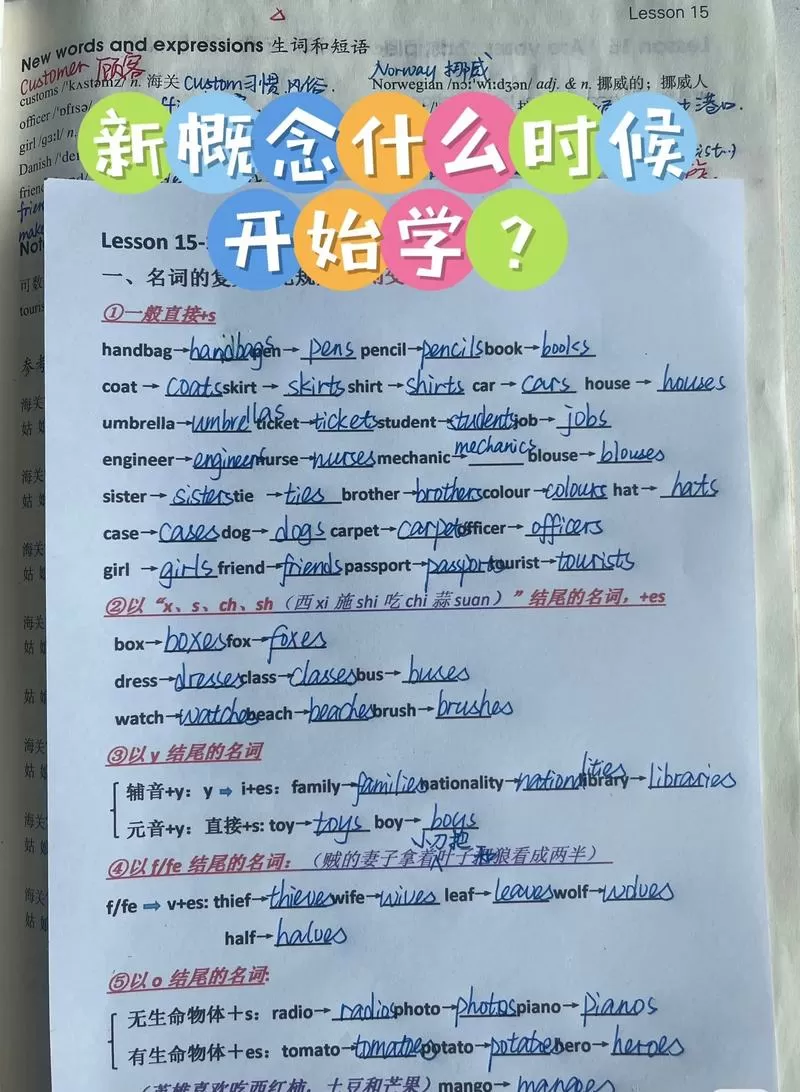 Lesson 15
New words and expressions 生词和短语
Customer 顾客
Norway 挪威
customs /'kʌstəmz/ n. 海关 custom 习惯 风俗.
Norwegian /nɔː'wiːdʒən/ adj. & n. 挪威的；挪威人
officer /'ɒfɪsə/
港口.
girl /gɜːl/ n.
Danish
新概念什么时候
开始学？
Lesson 15-
一、名词的复
①一般直接+s
handbag→handbags pen→ pens pencil→pencils book→books
coat → coats skirt → skirts shirt →shirts car → cars house → houses
umbrella→umbrellas ticket→tickets student→students job→ jobs
engineer→engineers nurse→nurses mechanic→mechanics blouse→ blouses
sister→ sisters tie → ties brother→brothers colour→colours hat→ hats
case→cases dog→ dogs carpet→ carpets officer→ officers
girl →girls friend→friends passport→passports tourist→tourists
②以“x、s、ch、sh（西 xi 施 shi 吃 chi 蒜 suan）”结尾的名词，+es
box→boxes fox→foxes
dress→dresses class→classes bus→ buses
watch→watches beach→beaches brush→brushes
③以 y 结尾的名词
辅音+y：y ⇒ i+es: family→families nationality→nationalities library→libraries
元音+y：直接+s: toy→toys boy→ boys
小刀把
④以 f/fe 结尾的名词：（贼的妻子拿着叶子 狼看成两半）
f/fe ⇒ v+es: thief→thieves wife→wives leaf→leaves wolf→wolves
half→halves
⑤以 o 结尾的名词:
无生命物体＋s：radio→ radios photo→photos piano→pianos
有生命物体＋es：tomato→tomatoes potato→potatoes hero→heroes
（英雄喜欢吃西红柿，土豆和芒果）mango→ mangoes